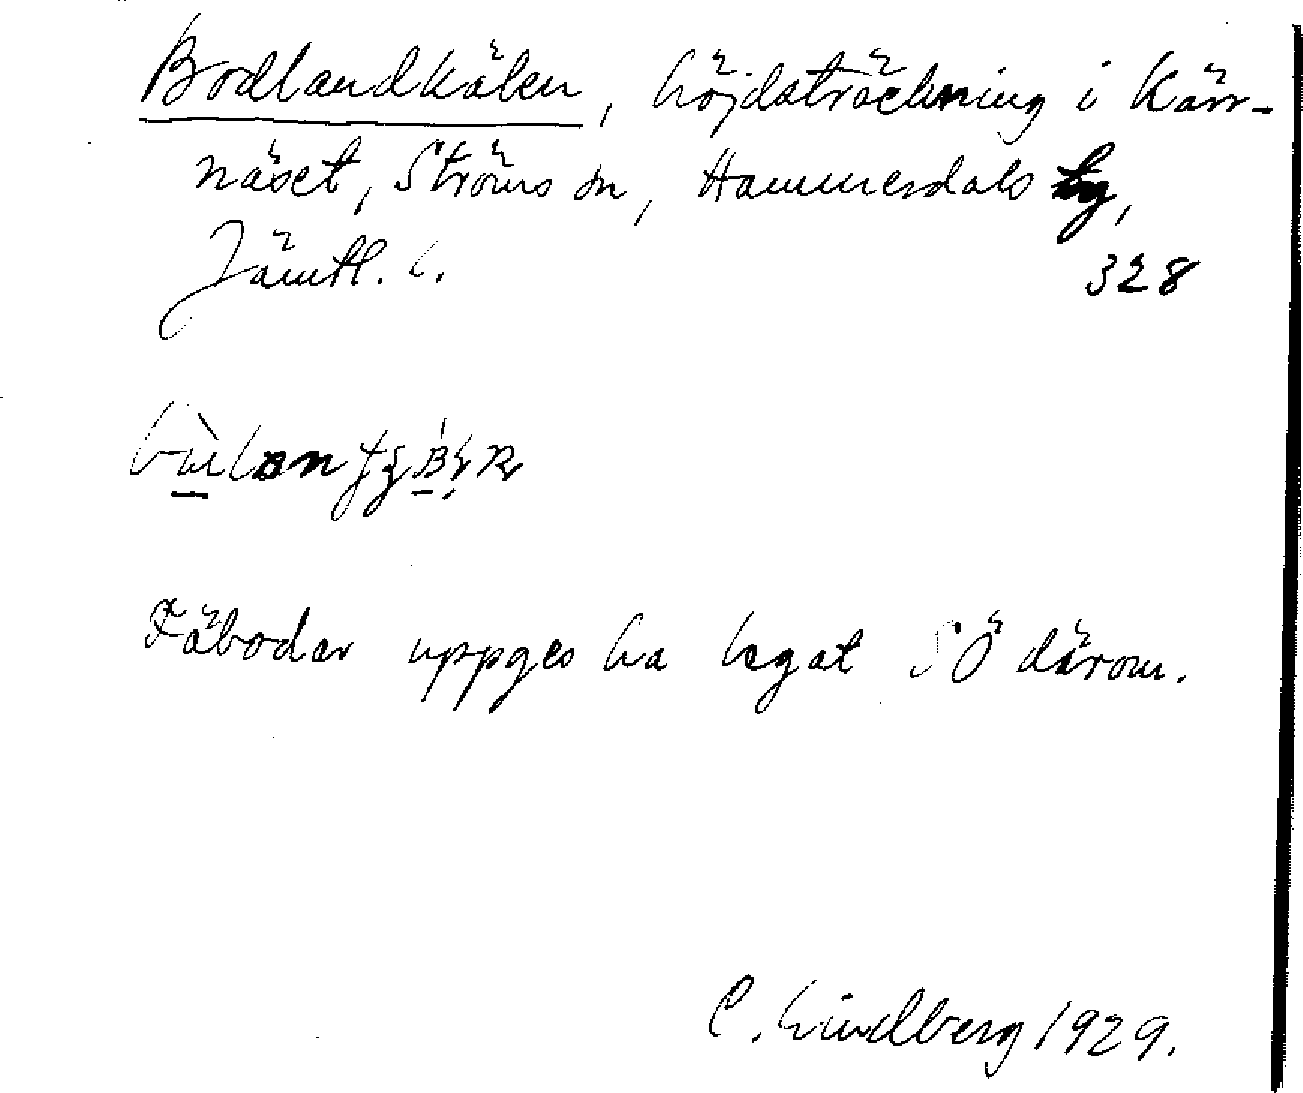 Bodlandkälen, höjdsträckning i Kärr-
näset, Ströms sn, Hammerdals tg,
Jämtl. l.
328
Fäbodar uppges ha legat SÖ därom.
C. Lindberg 1929.